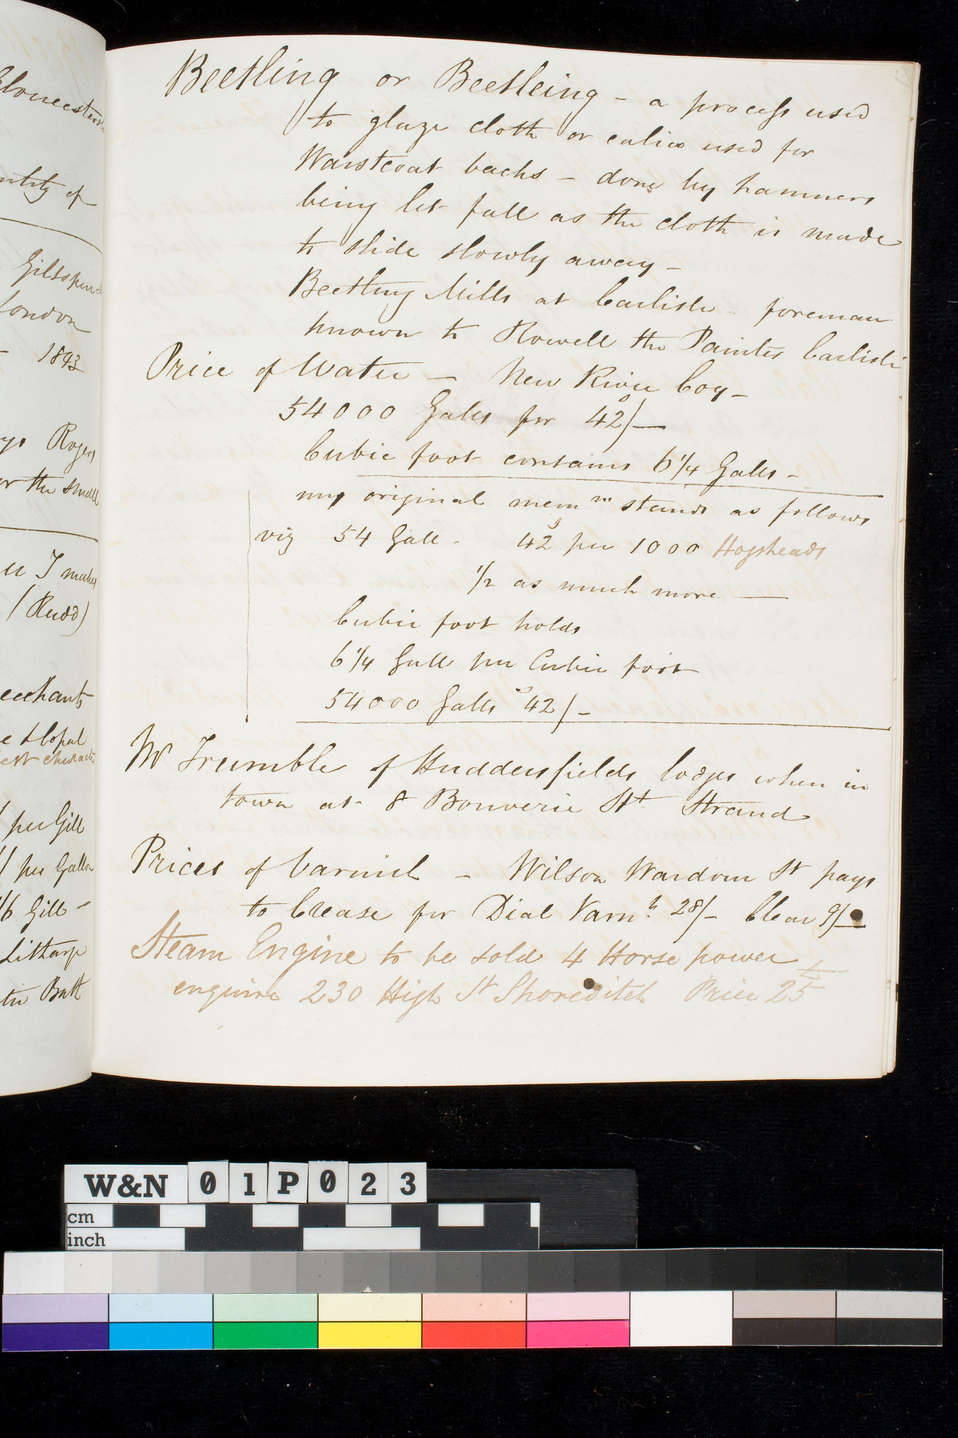 Gloucester
ntity of
Giltspur
London
1843
Rogers
or the small
I makes
(Rudd)
erchants
e & Copal
per Gill
per Gallon
Gill -
Litharge
Butt
Beetling or Beetleing - a process used
to glaze cloth or calico used for
Waistcoat backs - done by hammers
being let fall as the cloth is made
to slide slowly away -
Beetling Mills at Carlisle - foreman
known to Howell the Painter Carlisle
Price of Water - New River Coy -
54000 Galls for 42/-
Cubic foot contains 6 1/4 Galls -
my original mem m stands as follows
viz 54 Gall - 42 s per 1000 Hogsheads
1/2 as much more -
Cubic foot holds
6 1/4 Gall per Cubic foot
54000 Galls 42/-
Mr Trumble of Huddersfields lodges when in
town at 8 Bouverie St Strand
Prices of Varnish - Wilson Wardour St pays
to Crease for Dial Varnh 28/- Clear 9/-
Steam Engine to be sold 4 Horse power
enquire 230 High St Shoreditch Price 25 £
W&N 01P023
cm
inch